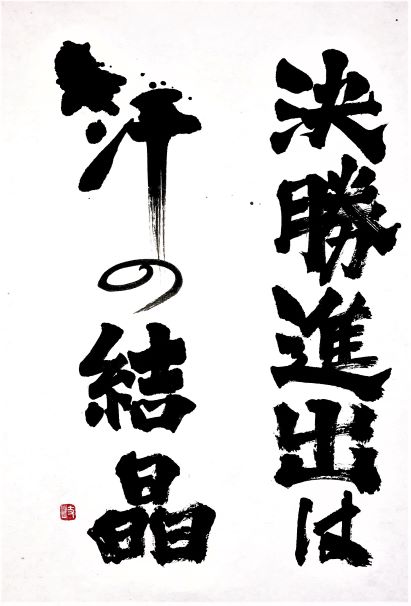 決勝進出は
汗の結晶